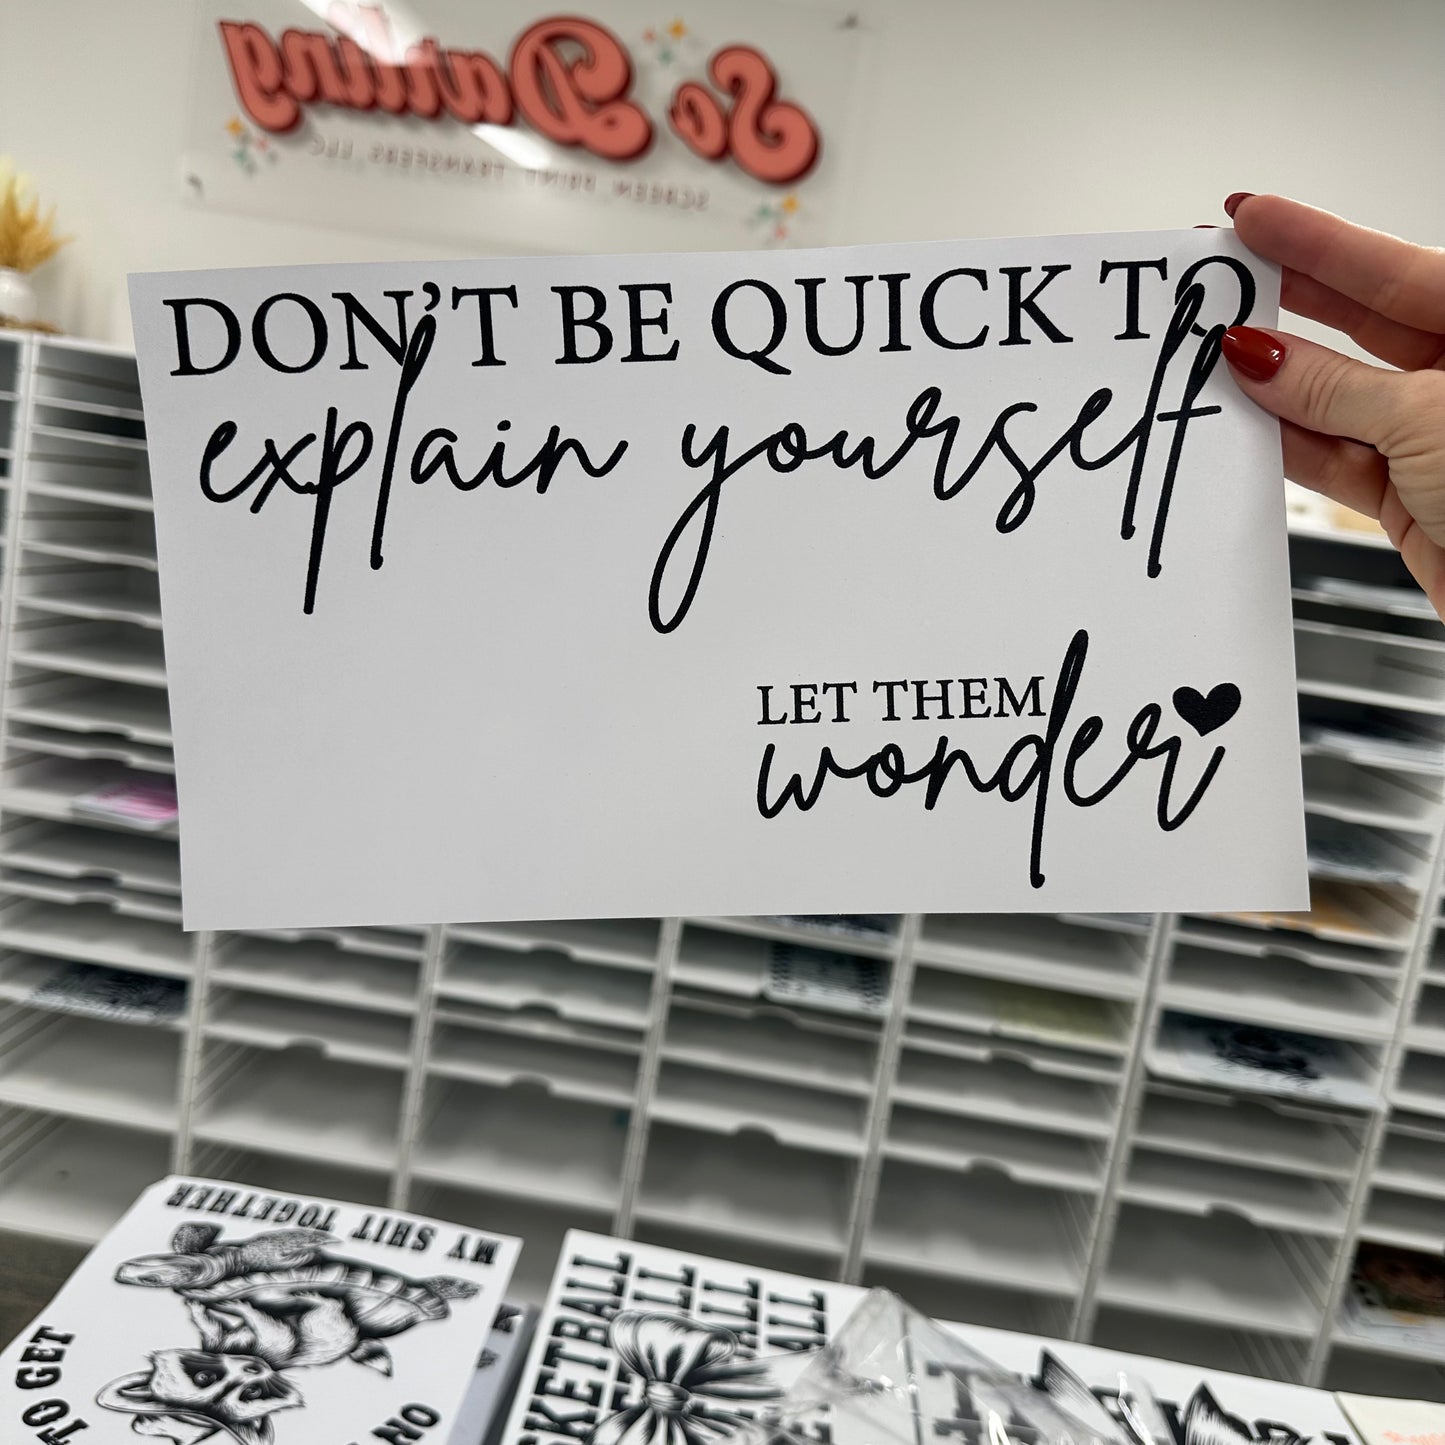 So Darling
SCREEN PRINT TRANSFERS LLC
DON'T BE QUICK TO
explain yourself
LET THEM
wonder
MY SHIT TOGETHER
TO GET
NO
BASKETBALL